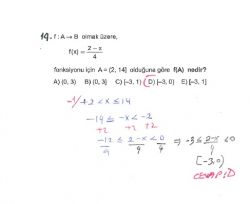 19. f : A → B olmak üzere,
f(x) = \frac{2-x}{4}
fonksiyonu için A = (2, 14] olduğuna göre f(A) nedir?
A) (0, 3) B) (0, 3] C) [-3, 1) D) [-3, 0) E) [-3, 1]
-1/ +2 < x ≤ 14
-14 ≤ -x < -2
+2 +2 +2
\frac{-12}{4} ≤ \frac{2-x}{4} < \frac{0}{4} ⇒ -3 ≤ \frac{2-x}{4} < 0
[-3,0)
CEVAP: D